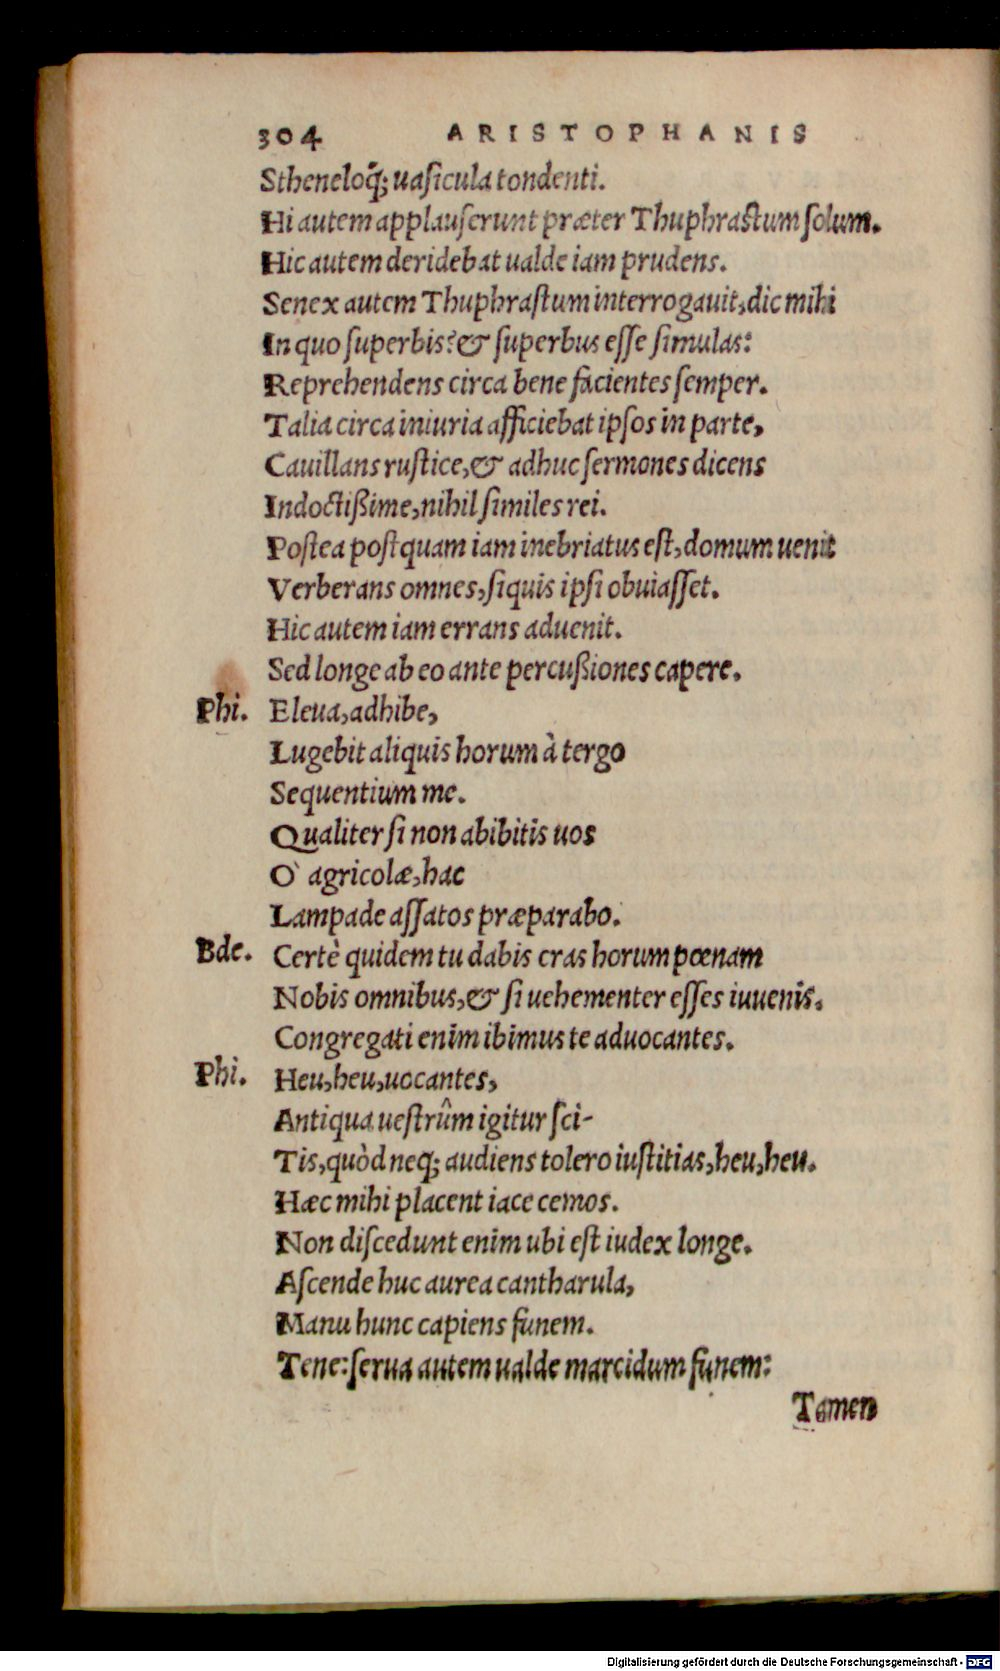 304 ARISTOPHANIS
Stheneloq̃; uaſicula tondenti.
Hi autem applauſerunt præter Thuphraſtum ſolum.
Hic autem deridebat ualde iam prudens.
Senex autem Thuphraſtum interrogauit, dic mihi
In quo ſuperbis? & ſuperbus eſſe ſimulas:
Reprehendens circa bene facientes ſemper.
Talia circa iniuria afficiebat ipſos in parte,
Cauillans ruſtice, & adhuc ſermones dicens
Indoctißime, nihil ſimiles rei.
Poſtea poſtquam iam inebriatus eſt, domum uenit
Verberans omnes, ſiquis ipſi obuiaſſet.
Hic autem iam errans aduenit.
Sed longe ab eo ante percußiones capere.
Phi. Eleua, adhibe,
Lugebit aliquis horum à tergo
Sequentium me.
Qualiter ſi non abibitis uos
O` agricolæ, hac
Lampade aſſatos præparabo.
Bde. Certè quidem tu dabis cras horum pœnam
Nobis omnibus, & ſi uehementer eſſes iuuenis.
Congregati enim ibimus te aduocantes.
Phi. Heu, heu, uocantes,
Antiqua ueſtrûm igitur ſci-
Tis, quòd neq; audiens tolero iuſtitias, heu, heu.
Hæc mihi placent iace cemos.
Non diſcedunt enim ubi eſt iudex longe.
Aſcende huc aurea cantharula,
Manu hunc capiens funem.
Tene: ſerua autem ualde marcidum funem:
Tamen
Digitalisierung gefördert durch die Deutsche Forschungsgemeinschaft - DFG